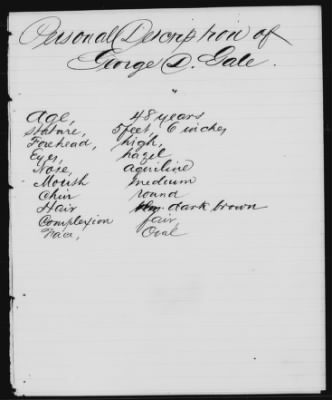 Personal Description of
George D. Gale.
"
Age, 48 years
Stature, 5 feet, 6 inches
Forehead, high,
Eyes, hazel
Nose, aquiline
Mouth medium
Chin round
Hair dark brown
Complexion fair,
Face, Oval